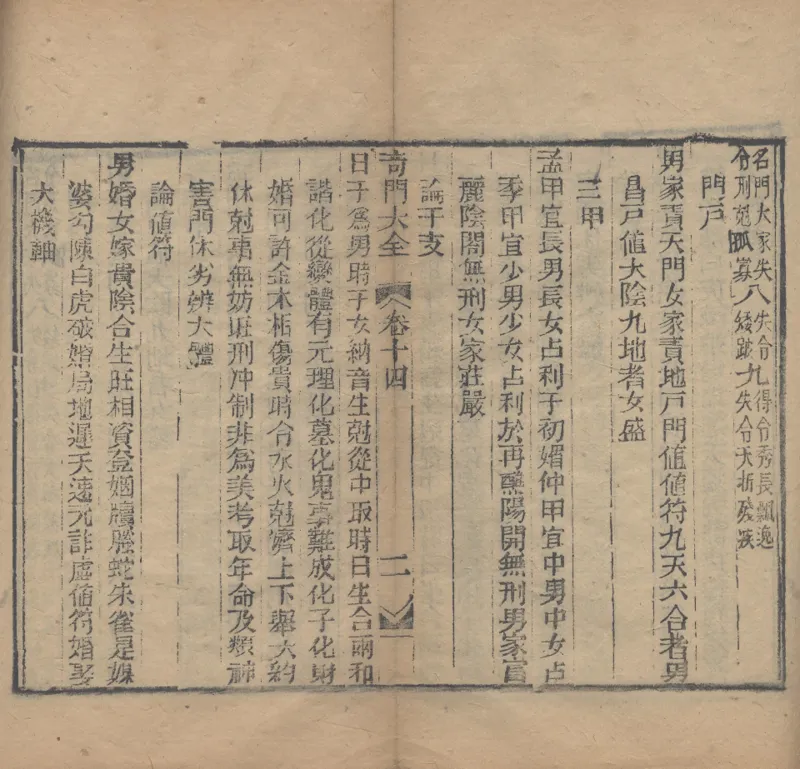 名門大家失八失令九得令秀長飄逸
合刑尅孤寡　綾跡　失令夭折殘疾
門戶
男家責天門女家責地戶門值值符九天六合者男
昌戶值太陰九地者女盛
三甲
孟甲宜長男長女占利于初婚仲甲宜中男中女占
季甲宜少男少女占利於再醮陽開無刑男家富
麗陰闔無刑女家莊嚴
論干支
奇門大全 卷十四 二
日干為男時干女納音生尅從中取時日生合兩和
諧化從變體有元理化墓化鬼事難成化子化財
婚可許金木相傷貴時合水火尅濟上下舉大約
休尅事無妨旺刑冲制非為美考取年命及類神
害門休劣辨大體
論值符
男婚女嫁貴陰合生旺相資登姻牘螣蛇朱雀是媒
婆勾陳白虎破婚局地遲天速元詐虛值符婚娶
大機軸